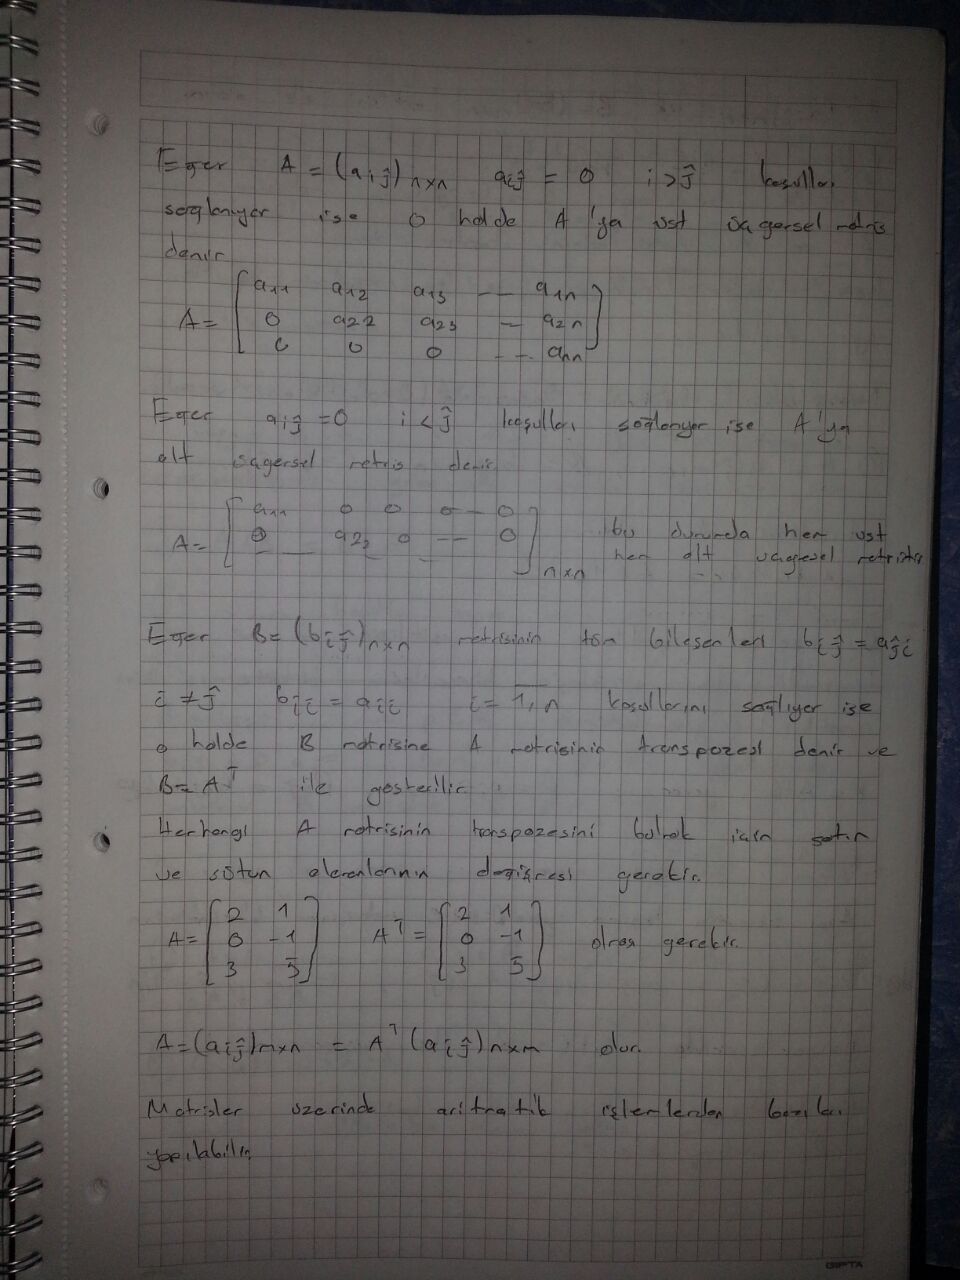 Eğer A = (aij)n×n aij = 0 i>j koşulları
sağlanıyor ise o halde A'ya üst üçgensel matris
denir
A = [ a11 a12 a13 — a1n
0 a22 a23 — a2n
0 0 0 -- ann ]
Eğer aij = 0 i<j koşulları sağlanıyor ise A'ya
alt üçgensel matris denir
A = [ a11 0 0 0 — 0
0 a22 0 -- 0 ] n×n bu durumda hem üst
hem alt üçgensel matristir
Eğer B = (bij)n×n matrisinin tüm bileşenleri bij = aji
i ≠ j bii = aii i = 1,n koşullarını sağlıyor ise
o halde B matrisine A matrisinin transpozesi denir ve
B = A^T ile gösterilir.
Herhangi A matrisinin transpozesini bulmak için satır
ve sütun elemanlarının değişmesi gerekir.
A = [ 2 1 A^T = [ 2 1
0 -1 0 -1 olması gerekir.
3 5 ] 3 5 ]
A = (aij)m×n = A^T (aij)n×m olur.
Matrisler üzerinde aritmatik işlemlerden bazıları
yapılabilir.
GIPTA